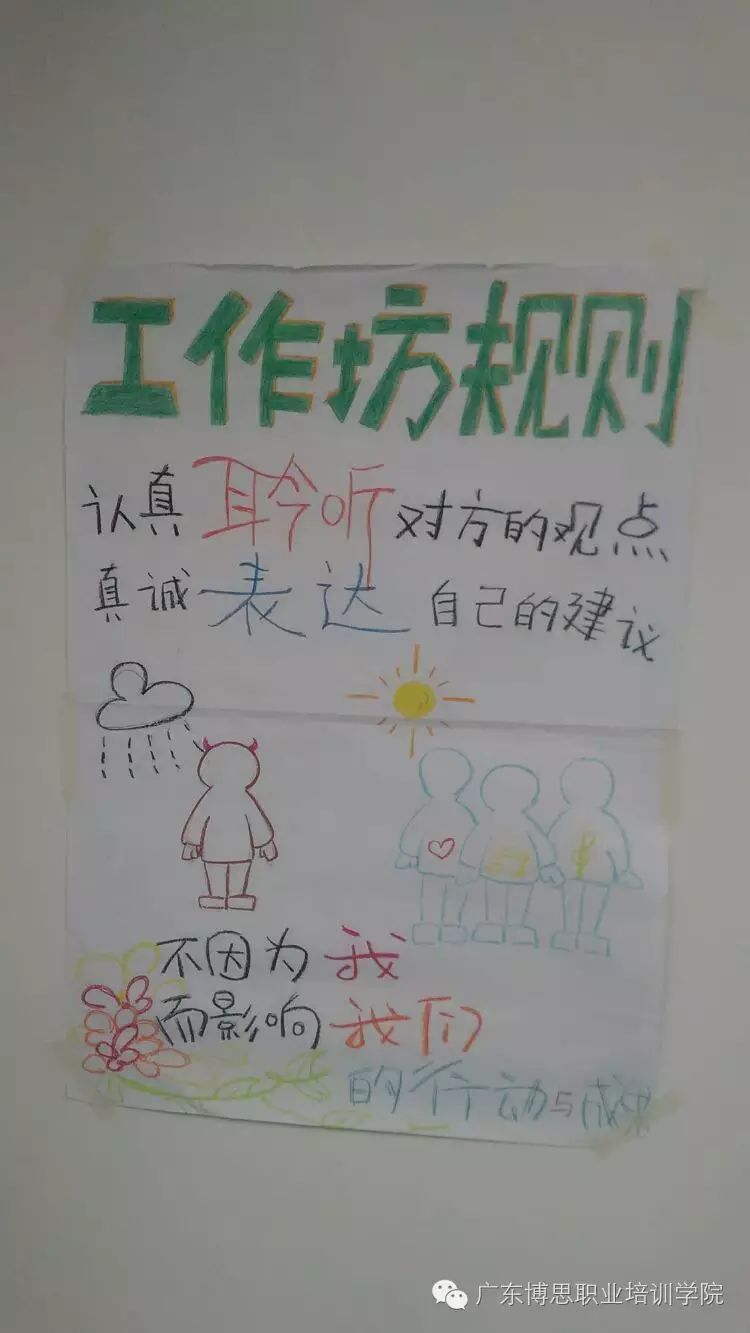 工作坊规则
认真聆听对方的观点
真诚表达自己的建议
不因为我
而影响我们
的行动与成果
广东博思职业培训学院